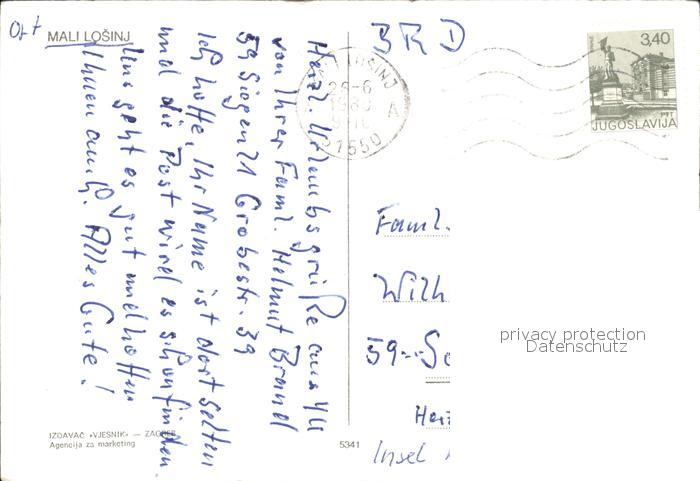 Ort
MALI LOŠINJ
Herzl. Urlaubsgrüße aus YU
von Ihrer Faml. Helmut Brand
59 Siegen 21 Grabestr. 39
Ich hoffe, Ihr Name ist dort selten
und die Post wird es schon finden.
Uns geht es gut und hoffen
Ihnen auch. Alles Gute!
BRD
LOŠINJ
26-6
1980
A
51550
3,40
JUGOSLAVIJA
Faml.
Wilh
59--
privacy protection
Datenschutz
Insel
IZDAVAČ «VJESNIK» — ZAGREB
Agencija za marketing
5341